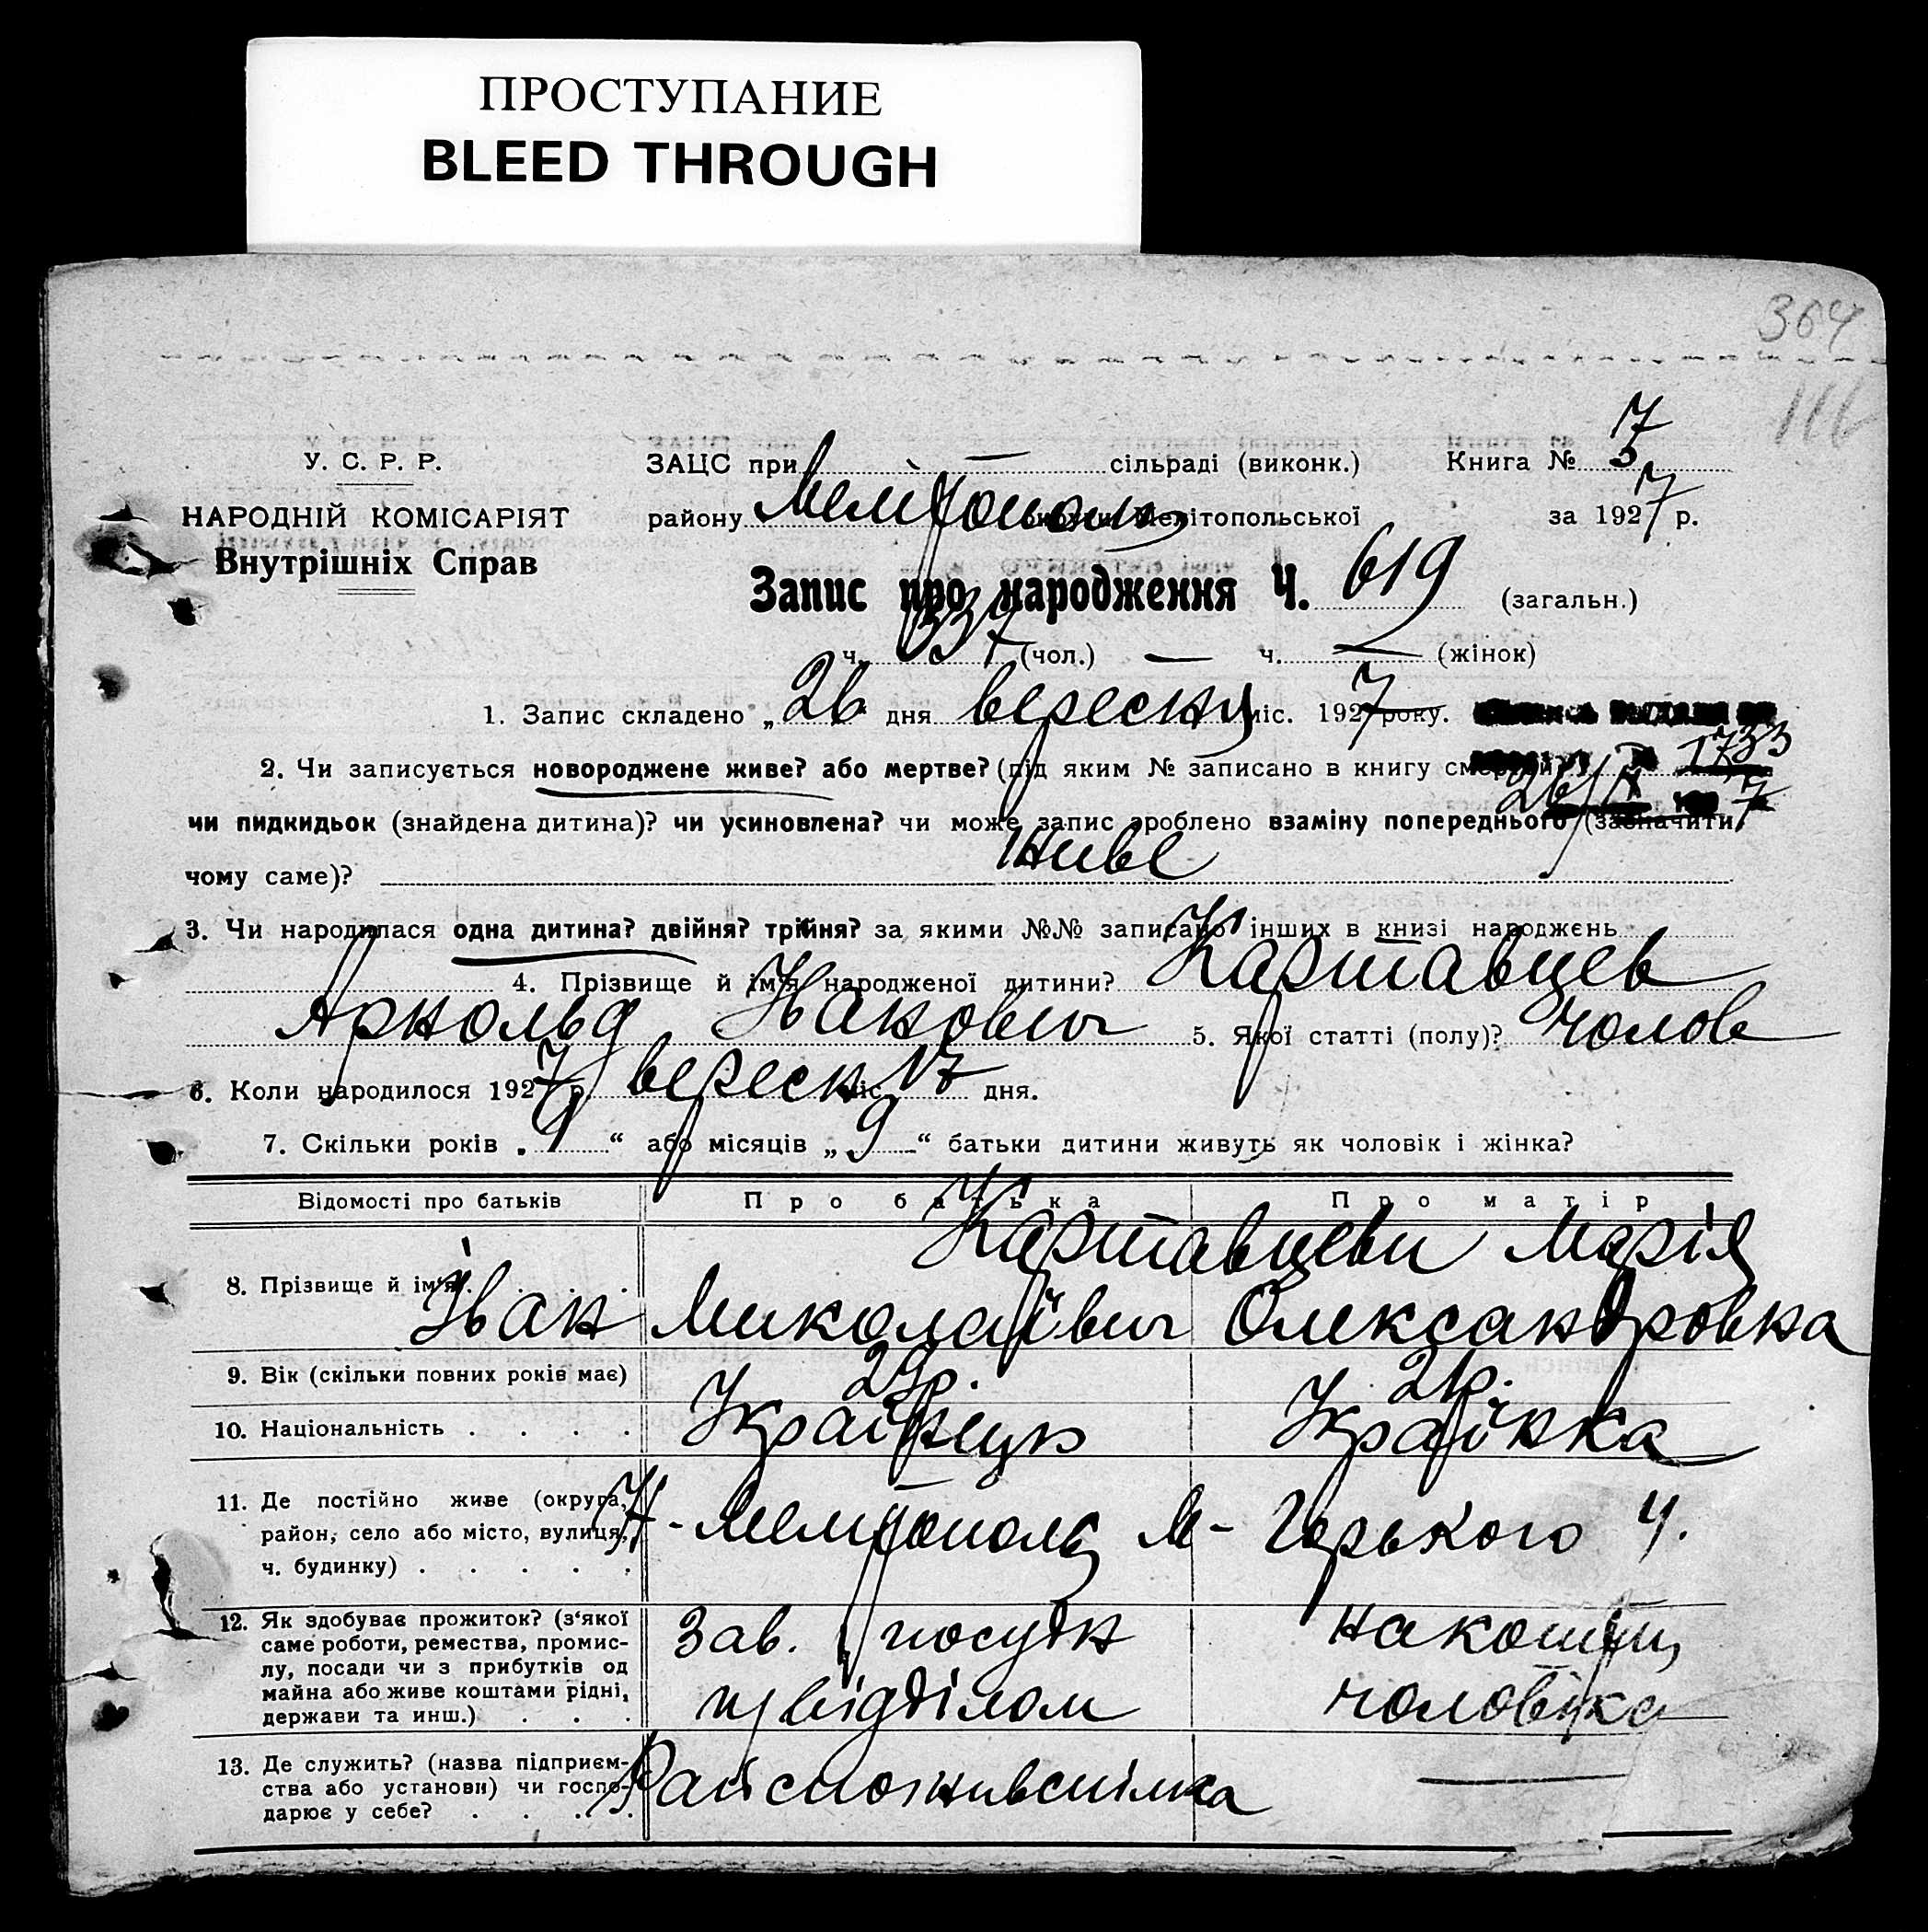 ПРОСТУПАНИЕ
BLEED THROUGH
364
116
У. С. Р. Р. ЗАЦС при — сільраді (виконк.) Книга № 5 7
НАРОДНІЙ КОМІСАРІЯТ району Мелітополь округи Мелітопольської за 1927 р.
Внутрішніх Справ
Запис про народження Ч. 619 (загальн.)
ч. 337 (чол.) — ч. — (жінок)
1. Запис складено „26 дня вересня міс. 1927 року.
1733
2. Чи записується новороджене живе? або мертве? (під яким № записано в книгу смертей
26/X 7
чи пидкидьок (знайдена дитина)? чи усиновлена? чи може запис зроблено взаміну попереднього (зазначити
чому саме)? живе
3. Чи народилася одна дитина? двійня? трійня? за якими №№ записано інших в книзі народжень
4. Прізвище й ім'я народженої дитини? Картавцев
Арнольд Іванович 5. Якої статті (полу)? чолов
6. Коли народилося 1927 р. вересн міс. 17 дня.
7. Скільки років „ “ або місяців „9“ батьки дитини живуть як чоловік і жінка?
Відомості про батьків Про батька Про матір
Картавцеви Марія
8. Прізвище й ім'я . Іван Миколаївич Олександровна
9. Вік (скільки повних років має) 29р. 21р.
10. Національність . . . . Українець Українка
11. Де постійно живе (округа,
район, село або місто, вулиця, Н-Мелітополь М-Горького 4.
ч. будинку) . . . . .
12. Як здобуває прожиток? (з'якої Зав. посудн на кошти
саме роботи, ремества, промис-
лу, посади чи з прибутків од
майна або живе коштами рідні, відділом чоловіка
держави та инш.) . . .
13. Де служить? (назва підприєм-
ства або установи) чи госпо- Райспоживспілка —
дарює у себе? . . . .